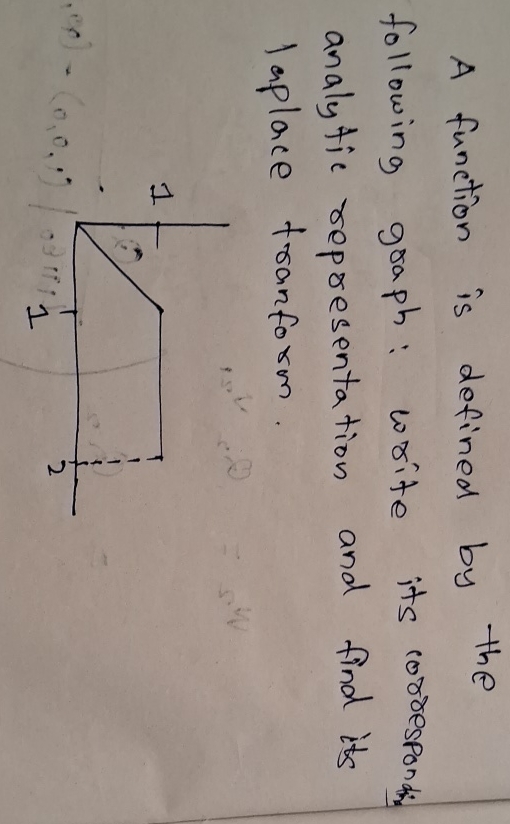 A function is defined by the
following graph: write its correspondi
analytic representation and find its
laplace tranform.
1
1
2